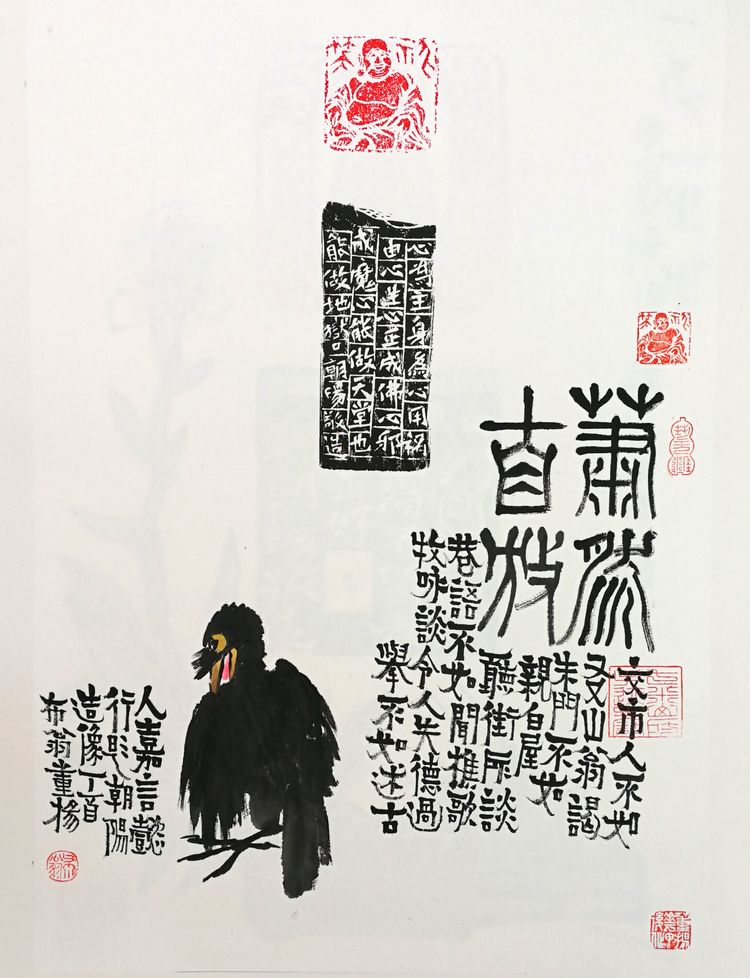 心爲主身爲心用禍
由心造心正成佛心邪
成魔心能做天堂也
能做地獄朝陽敬造
蕭然
自放
交市人不如
友山翁謁
朱門不如
親白屋
聽街談
巷語不如聞樵歌
牧咏談今人失德過
舉不如述古
人嘉言懿
行朝陽
造像丁酉
布翁董揚